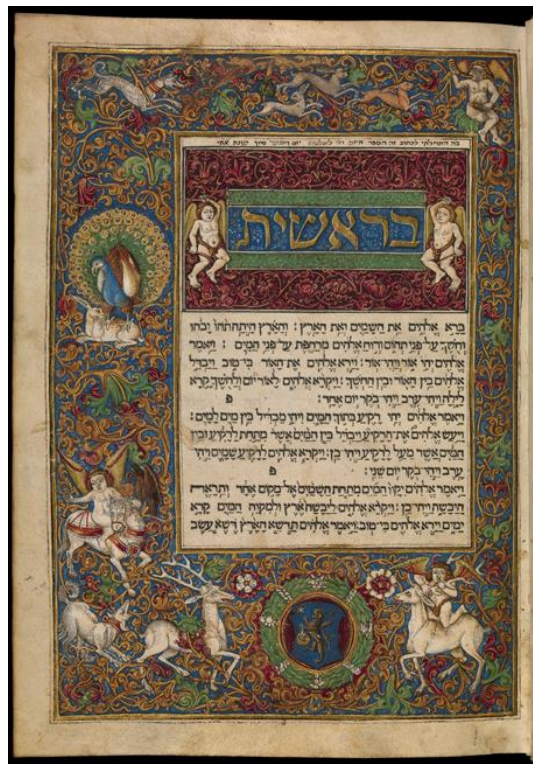 בראשית
בָּרָא אֱלֹהִים אֵת הַשָּׁמַיִם וְאֵת הָאָרֶץ׃ וְהָאָרֶץ הָיְתָה תֹהוּ וָבֹהוּ
וְחֹשֶׁךְ עַל־פְּנֵי תְהוֹם וְרוּחַ אֱלֹהִים מְרַחֶפֶת עַל־פְּנֵי הַמָּיִם׃ וַיֹּאמֶר
אֱלֹהִים יְהִי אוֹר וַיְהִי־אוֹר׃ וַיַּרְא אֱלֹהִים אֶת הָאוֹר כִּי־טוֹב וַיַּבְדֵּל
אֱלֹהִים בֵּין הָאוֹר וּבֵין הַחֹשֶׁךְ׃ וַיִּקְרָא אֱלֹהִים לָאוֹר יוֹם וְלַחֹשֶׁךְ קָרָא
לָיְלָה וַיְהִי עֶרֶב וַיְהִי בֹקֶר יוֹם אֶחָד׃ פ
וַיֹּאמֶר אֱלֹהִים יְהִי רָקִיעַ בְּתוֹךְ הַמָּיִם וִיהִי מַבְדִּיל בֵּין מַיִם לָמָיִם׃
וַיַּעַשׂ אֱלֹהִים אֶת־הָרָקִיעַ וַיַּבְדֵּל בֵּין הַמַּיִם אֲשֶׁר מִתַּחַת לָרָקִיעַ וּבֵין
הַמַּיִם אֲשֶׁר מֵעַל לָרָקִיעַ וַיְהִי כֵן׃ וַיִּקְרָא אֱלֹהִים לָרָקִיעַ שָׁמָיִם וַיְהִי
עֶרֶב וַיְהִי בֹקֶר יוֹם שֵׁנִי׃ פ
וַיֹּאמֶר אֱלֹהִים יִקָּווּ הַמַּיִם מִתַּחַת הַשָּׁמַיִם אֶל מָקוֹם אֶחָד וְתֵרָאֶה
הַיַּבָּשָׁה וַיְהִי כֵן׃ וַיִּקְרָא אֱלֹהִים לַיַּבָּשָׁה אֶרֶץ וּלְמִקְוֵה הַמַּיִם קָרָא
יַמִּים וַיַּרְא אֱלֹהִים כִּי־טוֹב׃ וַיֹּאמֶר אֱלֹהִים תַּדְשֵׁא הָאָרֶץ דֶּשֶׁא עֵשֶׂב